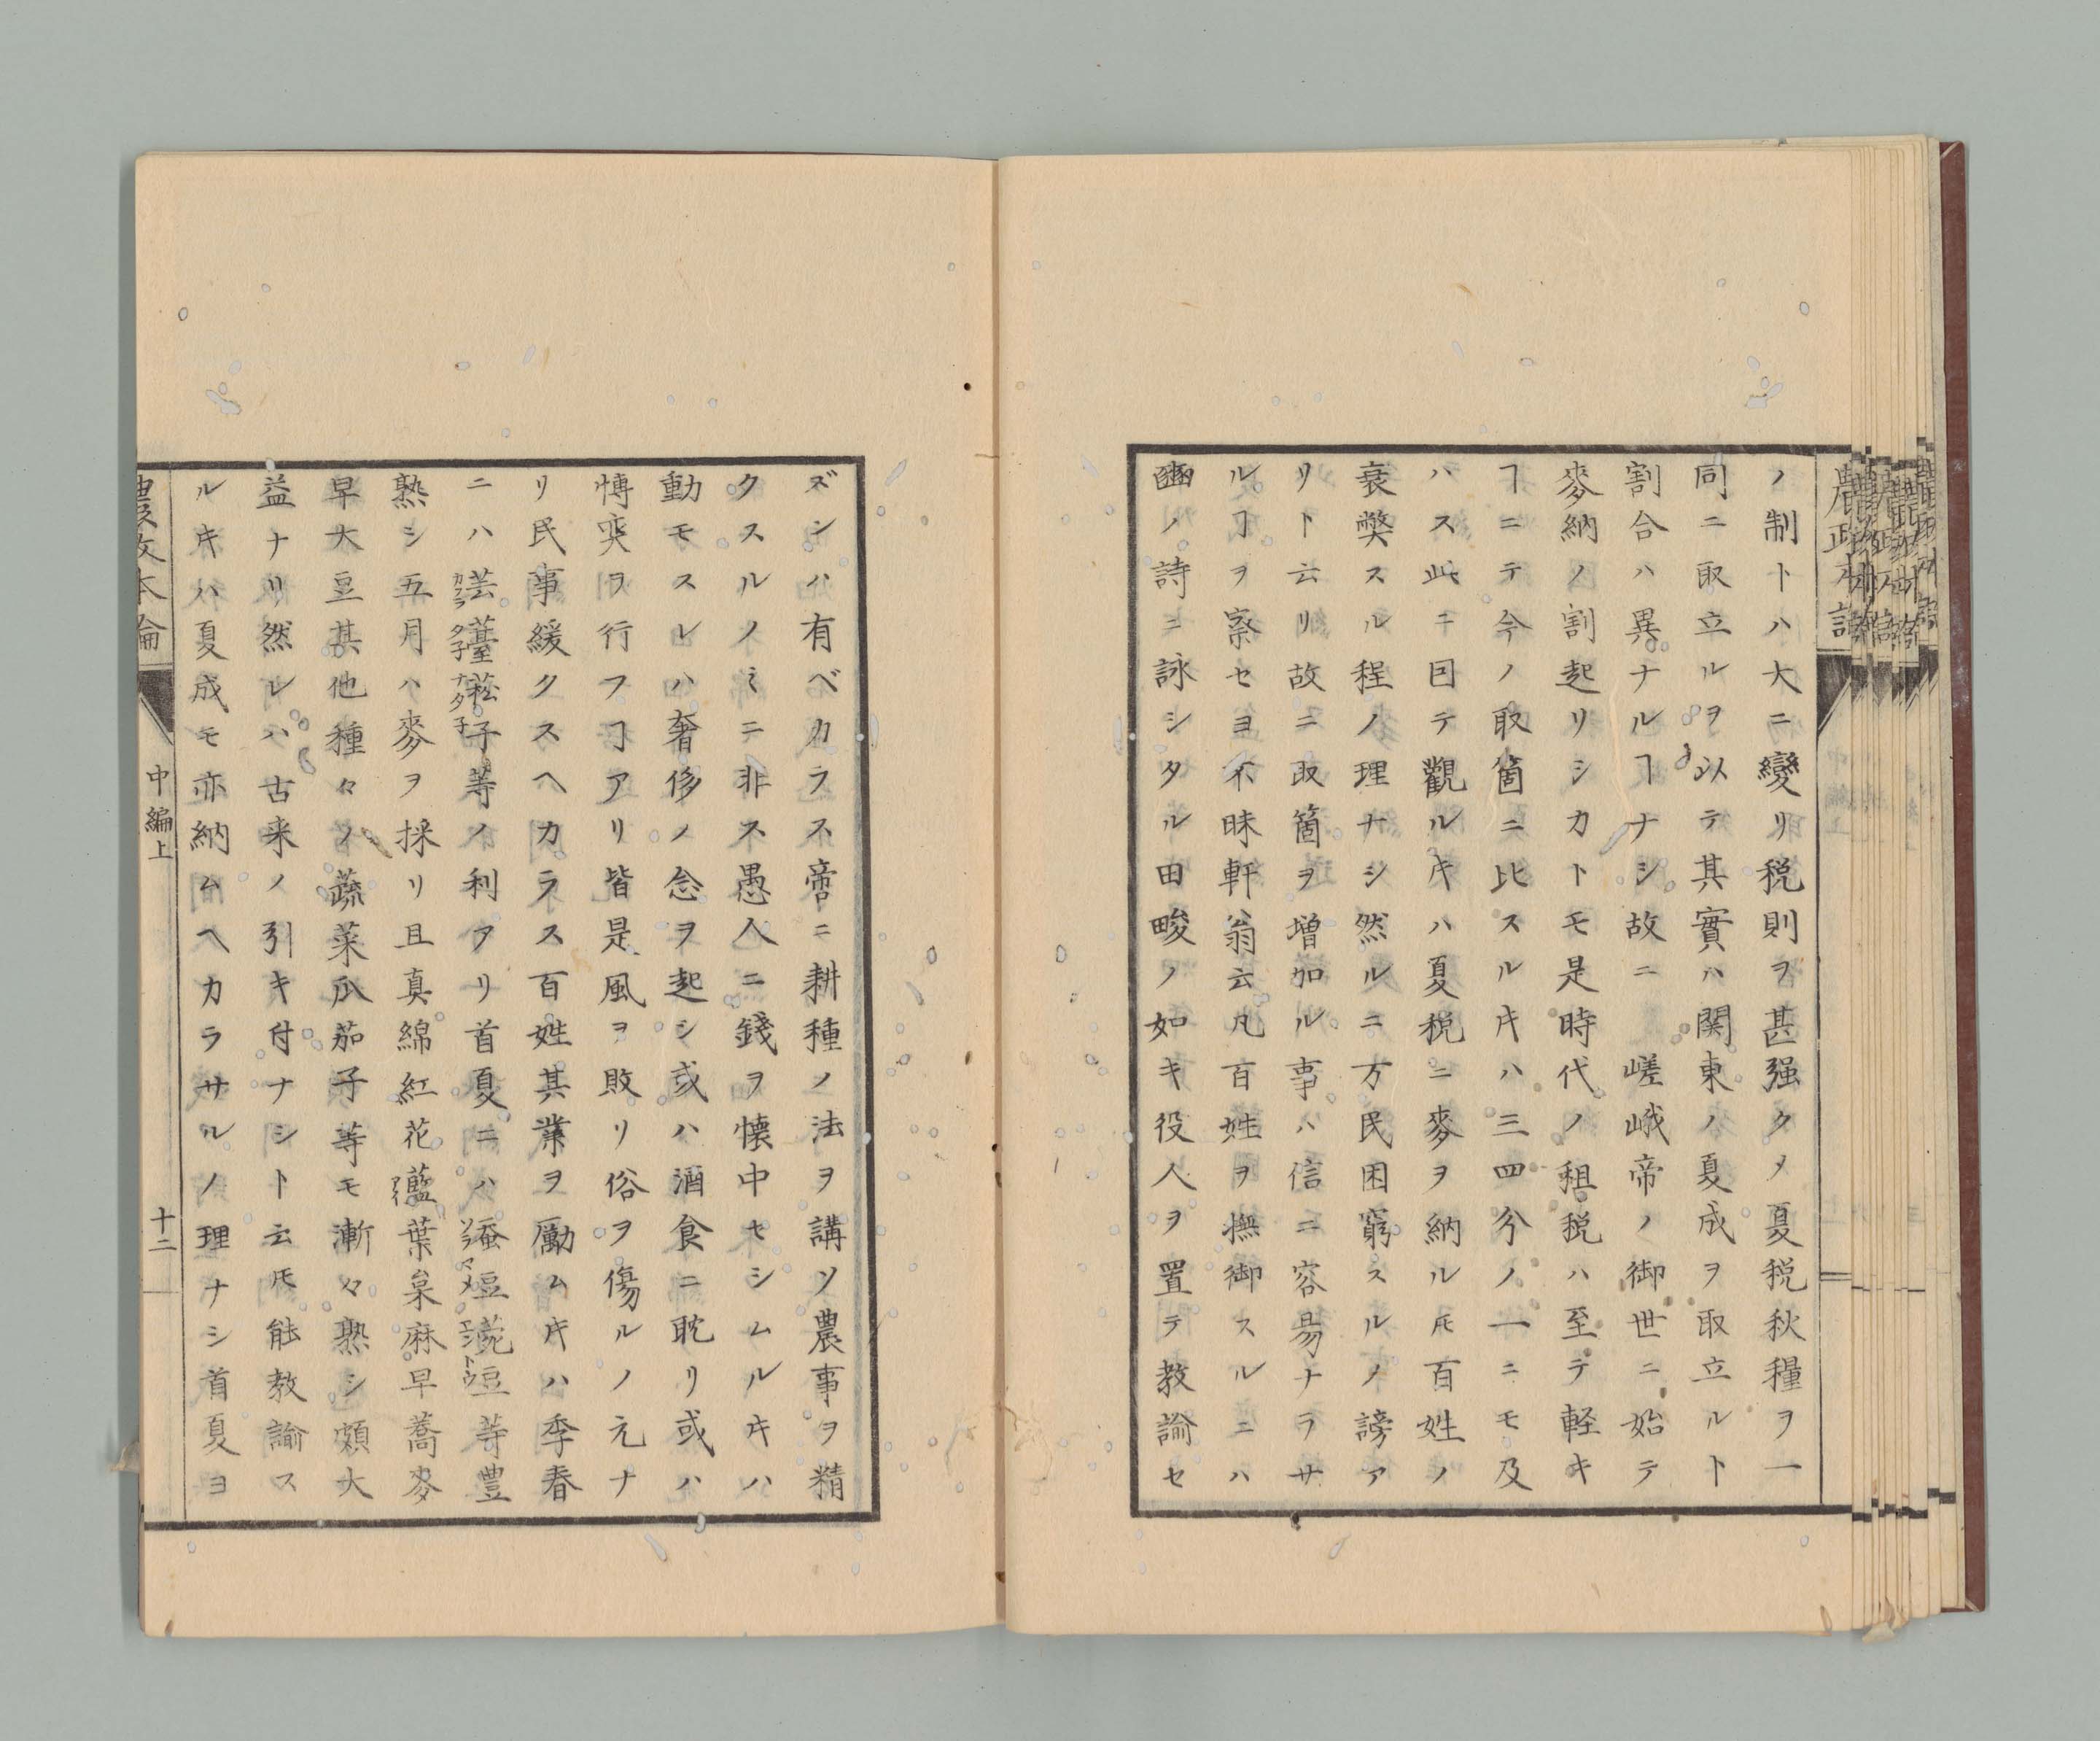 ノ制トハ大ニ變リ税則ヲ甚强クメ夏税秋糧ヲ一
同ニ取立ルヲ以テ其實ハ関東ノ夏成ヲ取立ルト
割合ハ異ナルヿナシ故ニ　嵯峨帝ノ御世ニ始テ
麥納ノ割起リシカトモ是時代ノ租税ハ至テ軽キ
ヿニテ今ノ取箇ニ比スルキハ三四分ノ一ニモ及
ハス此ニ因テ觀ルキハ夏税ニ麥ヲ納ルㇳモ百姓ノ
衰弊スル程ノ理ナシ然ルニ万民困窮スルノ謗ア
リト云リ故ニ取箇ヲ増加ル事ハ信ニ容易ナラサ
ルヿヲ察セヨ不昧軒翁云凡百姓ヲ撫御スルニハ
豳ノ詩ニ詠シタル田畯ノ如キ役人ヲ置テ教諭セ
ズンハ有ベカラス啻ニ耕種ノ法ヲ講ソ農事ヲ精
クスルノミニ非ス愚人ニ錢ヲ懐中セシムルキハ
動モスレハ奢侈ノ念ヲ起シ或ハ酒食ニ耽リ或ハ
博奕ヲ行フヿアリ皆是風ヲ敗リ俗ヲ傷ルノ元ナ
リ民事緩クスヘカラス百姓其業ヲ勵ムキハ季春
ニハ芸薹菘子等ノ利アリ首夏ニハ蚕豆豌豆等豊
熟シ五月ハ麥ヲ採リ且真綿紅花藍葉枲麻早蕎麥
早大豆其他種々ノ蔬菜瓜茄子等モ漸々熟シ頗大
益ナリ然レハ古来ノ引キ付ナシト云ㇳモ能教諭ス
ルキハ夏成モ亦納ムヘカラサルノ理ナシ首夏ヨ
農政本論　中編上　十二